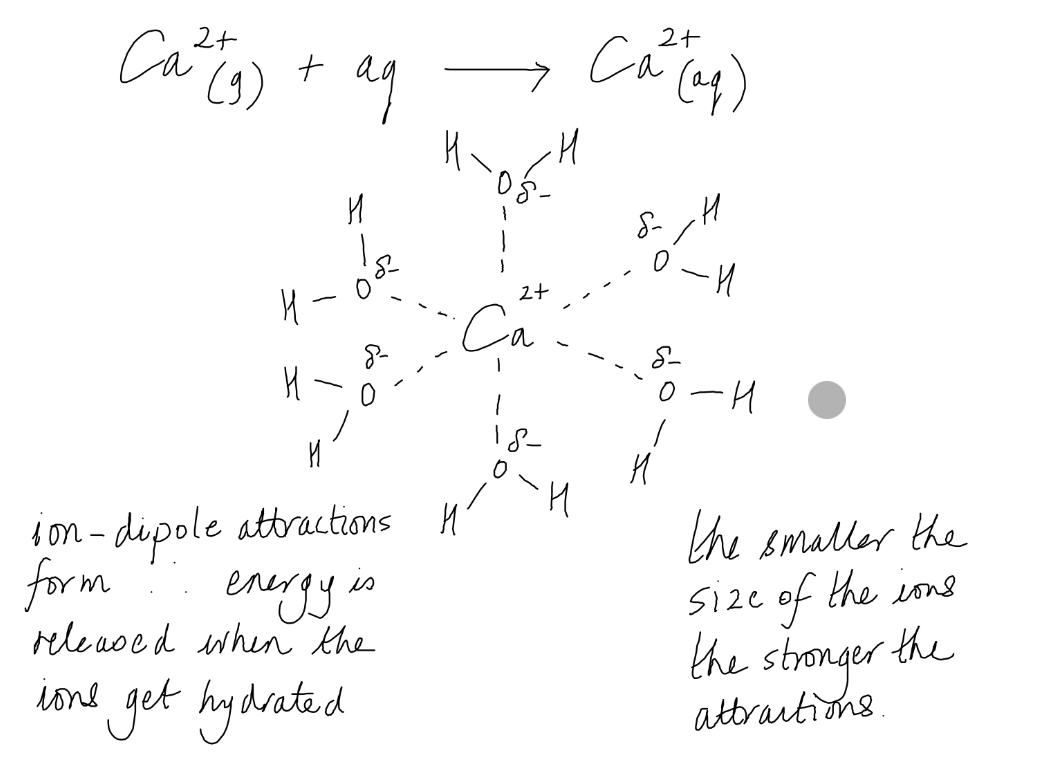 Ca²⁺(g) + aq → Ca²⁺(aq)
H H
O δ-
H
H O δ-
δ- H
O H
Ca²⁺
δ-
H O
H
δ-
O H
H
δ-
O
H H
ion-dipole attractions
form ∴ energy is
released when the
ions get hydrated
the smaller the
size of the ions
the stronger the
attractions.